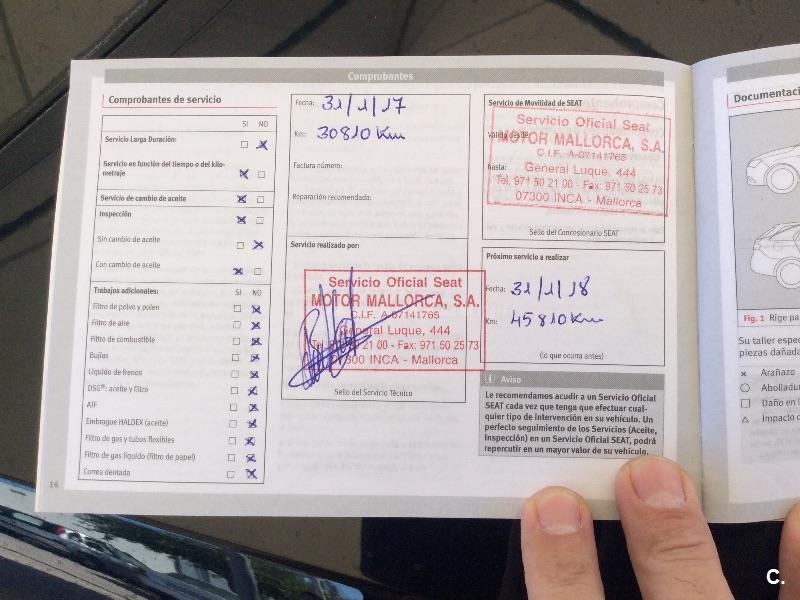 Comprobantes
Comprobantes de servicio
SI NO
Servicio Larga Duración:
Servicio en función del tiempo o del kilo-
metraje
Servicio de cambio de aceite
Inspección
Sin cambio de aceite
Con cambio de aceite
Trabajos adicionales: SI NO
Filtro de polvo y polen
Filtro de aire
Filtro de combustible
Bujías
Líquido de frenos
DSG®: aceite y filtro
ATF
Embrague HALDEX (aceite)
Filtro de gas y tubos flexibles
Filtro de gas líquido (filtro de papel)
Correa dentada
16
Fecha: 31/1/17
Km: 30810 Km
Factura número:
Reparación recomendada:
Servicio realizado por:
Servicio Oficial Seat
MOTOR MALLORCA, S.A.
C.I.F. A-07141765
General Luque, 444
Tel. 971 50 21 00 - Fax: 971 50 25 73
07300 INCA - Mallorca
Sello del Servicio Técnico
Servicio de Movilidad de SEAT
Válida desde:
hasta:
Servicio Oficial Seat
MOTOR MALLORCA, S.A.
C.I.F. A-07141765
General Luque, 444
Tel. 971 50 21 00 - Fax: 971 50 25 73
07300 INCA - Mallorca
Sello del Concesionario SEAT
Próximo servicio a realizar
Fecha: 31/1/18
Km: 45810 Km
(lo que ocurra antes)
i Aviso
Le recomendamos acudir a un Servicio Oficial
SEAT cada vez que tenga que efectuar cual-
quier tipo de intervención en su vehículo. Un
perfecto seguimiento de los Servicios (Aceite,
Inspección) en un Servicio Oficial SEAT, podrá
repercutir en un mayor valor de su vehículo.
Documentaci
Fig. 1 Rige pa
Su taller espec
piezas dañada
Arañazo
Abolladu
Daño en l
Impacto c
C.